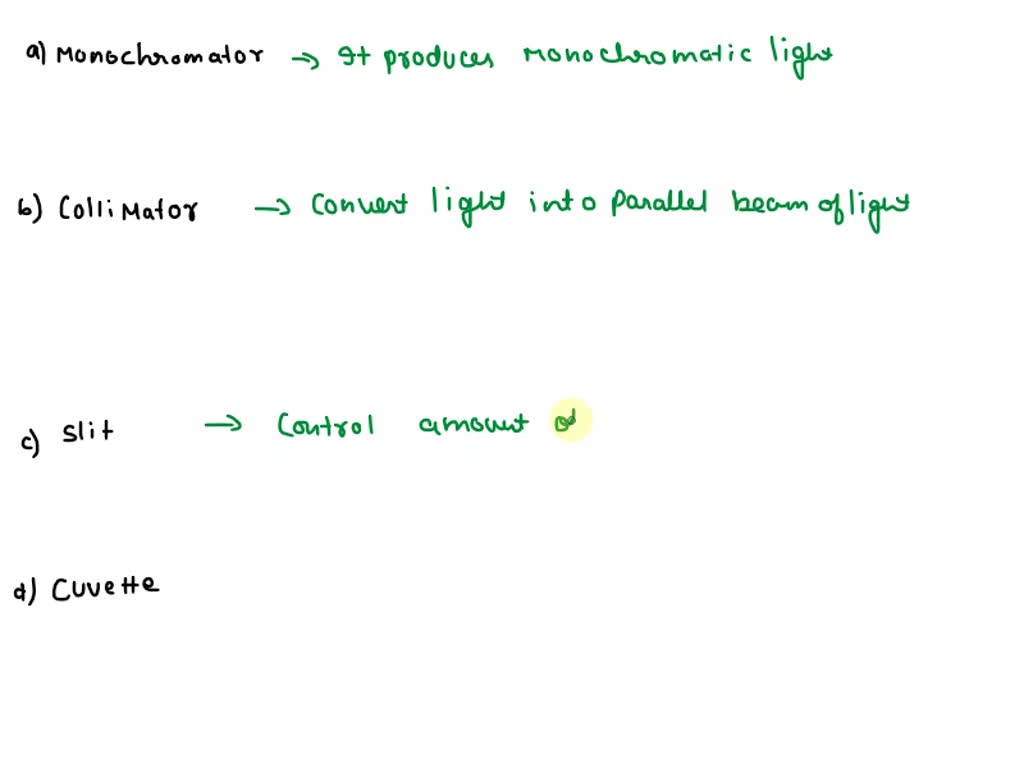 a) Monochromator → It produces monochromatic light
b) Collimator → Convert light into parallel beam of light
c) Slit → Control amount
d) Cuvette